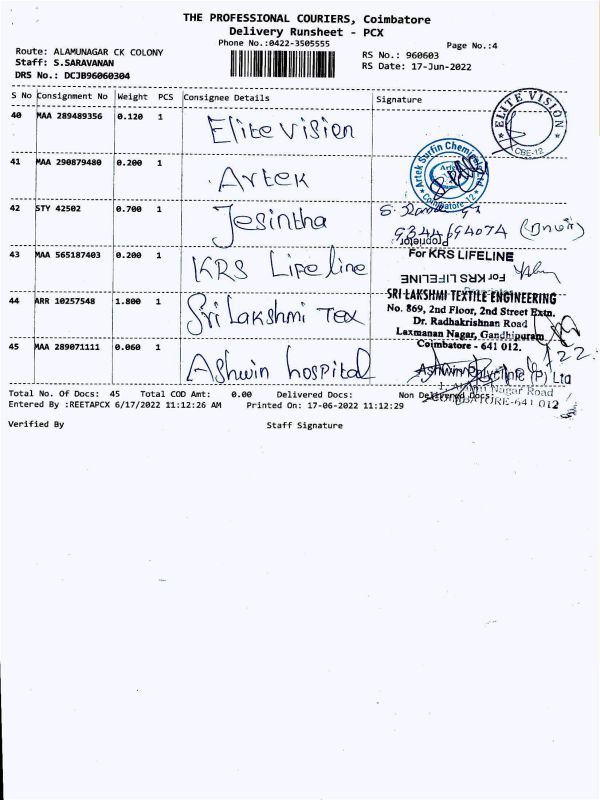 THE PROFESSIONAL COURIERS, Coimbatore
Delivery Runsheet - PCX
Phone No.:0422-3505555
Page No.:4
Route: ALAMUNAGAR CK COLONY
RS No.: 960603
Staff: S.SARAVANAN
RS Date: 17-Jun-2022
DRS No.: DCJB96060304
S No Consignment No Weight PCS Consignee Details Signature
40 MAA 289489356 0.120 1 Elite vision
ELITE VISION
CBE-12
41 MAA 290879480 0.200 1 Artek
Artek Surfin Chemicals
Coimbatore-12
42 STY 42502 0.700 1 Jesintha
9344694074
Proprietor
43 MAA 565187403 0.200 1 KRS Lifeline
For KRS LIFELINE
For KRS LIFELINE
44 ARR 10257548 1.800 1 Sri Lakshmi Tex
SRI LAKSHMI TEXTILE ENGINEERING
No. 869, 2nd Floor, 2nd Street Extn.
Dr. Radhakrishnan Road
Laxmanan Nagar, Gandhipuram
Coimbatore - 641 012.
45 MAA 289071111 0.060 1 Ashwin hospital
Ashwin Polyclinic (P) Ltd
Nagar Road
COIMBATORE-641 012
Total No. Of Docs: 45 Total COD Amt: 0.00 Delivered Docs: Non Delivered Docs:
Entered By :REETAPCX 6/17/2022 11:12:26 AM Printed On: 17-06-2022 11:12:29
Verified By Staff Signature